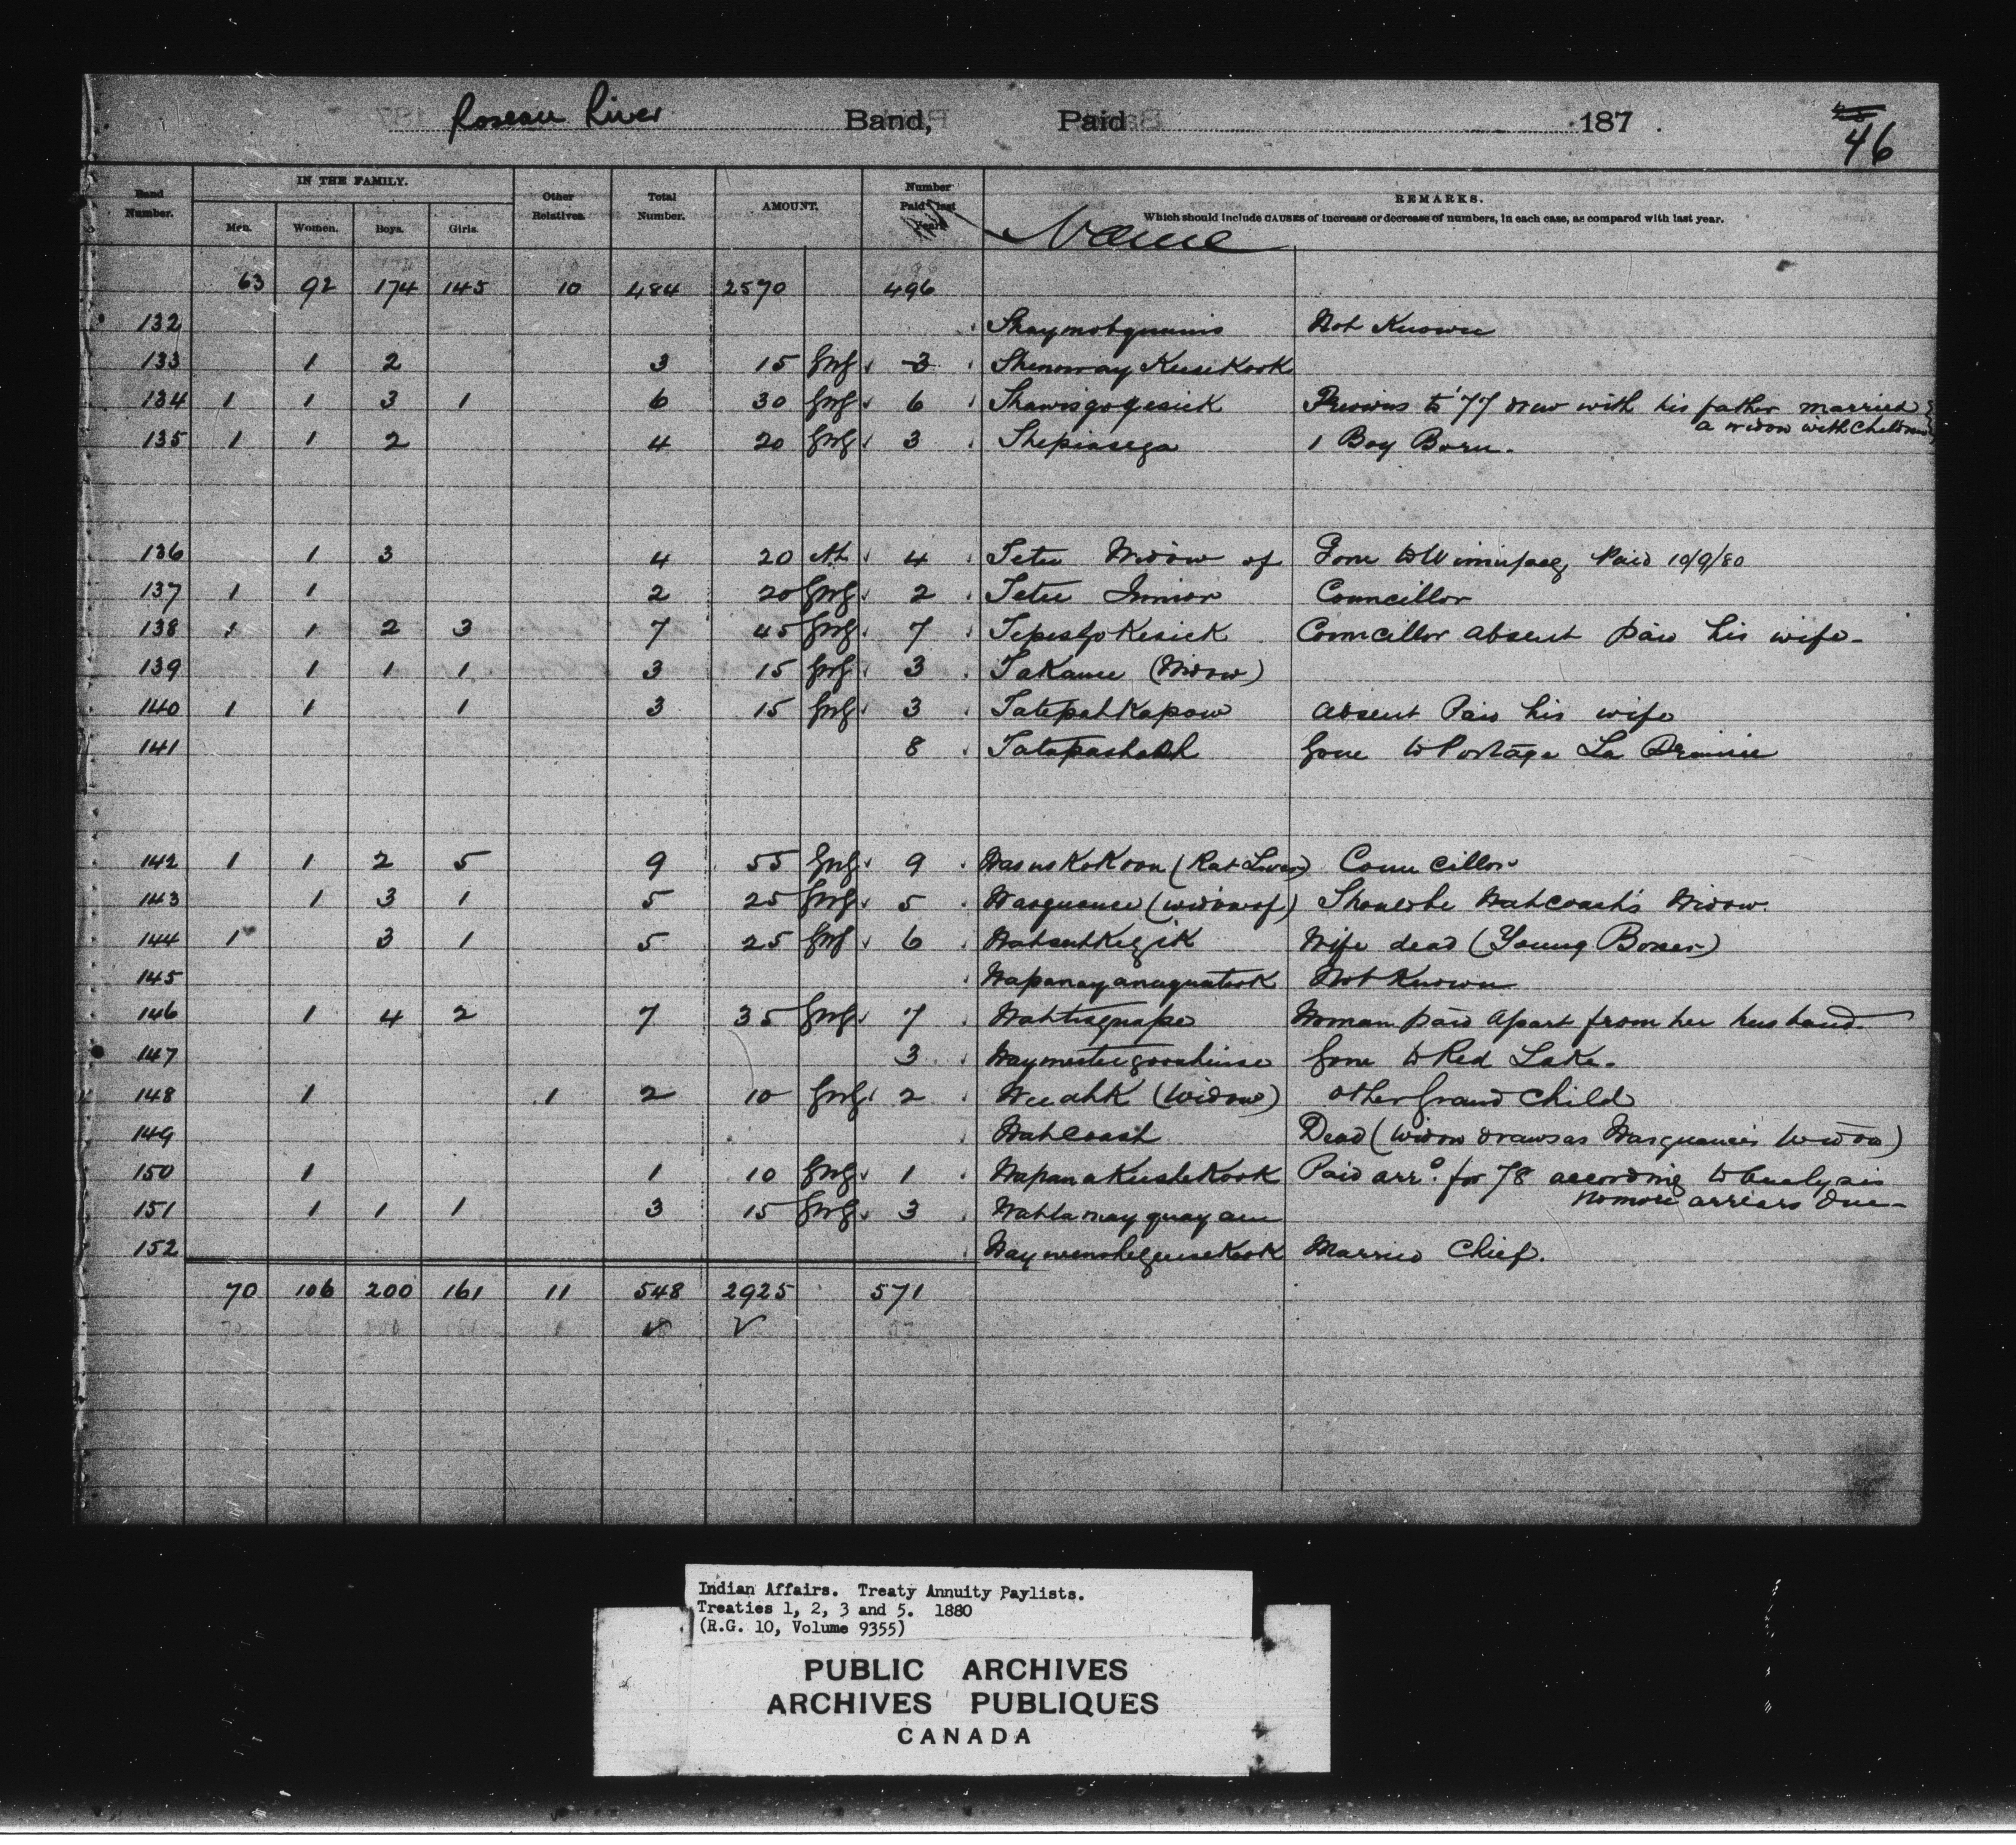 Roseau River Band, Paid 187 .
46
Band Number. IN THE FAMILY. Men. Women. Boys. Girls. Other Relatives. Total Number. AMOUNT. Number Paid last Year Name REMARKS.
Which should include CAUSES of increase or decrease of numbers, in each case, as compared with last year.
63 92 174 145 10 484 2570 496
132 Not Known
133 1 2 3 15 3
134 1 1 3 1 6 30 6 Shawisgogesick Previous to '77 drew with his father married
a widow with Children
135 1 1 2 4 20 3 Shepiasega 1 Boy Born.
136 1 3 4 20 4 Tetu Widow of Gone to Winnipeg, Paid 10/9/80
137 1 1 2 20 2 Tetu Junior Councillor
138 1 1 2 3 7 45 7 Councillor absent paid his wife -
139 1 1 1 3 15 3 (Widow)
140 1 1 1 3 15 3 Tatepahkapow Absent Paid his wife
141 8 Gone to Portage La Prairie
142 1 1 2 5 9 55 9 (Rat Liver) Councillor
143 1 3 1 5 25 5 (widow of) Should be Wahcoash's Widow.
144 1 3 1 5 25 6 Wife dead (Young Boxer)
145 Not Known
146 1 4 2 7 35 7 Woman paid apart from her husband.
147 3 Gone to Red Lake.
148 1 1 2 10 2 Weeahk (Widow) other Grand Child
149 Wahcoash Dead (Widow draws as Wasquance's Widow)
150 1 1 10 1 WapanaKeesheKook Paid arrs. for 78 according to Analysis
no more arrears due -
151 1 1 1 3 15 3
152 Married Chief.
70 106 200 161 11 548 2925 571
Indian Affairs. Treaty Annuity Paylists.
Treaties 1, 2, 3 and 5. 1880
(R.G. 10, Volume 9355)
PUBLIC ARCHIVES
ARCHIVES PUBLIQUES
CANADA